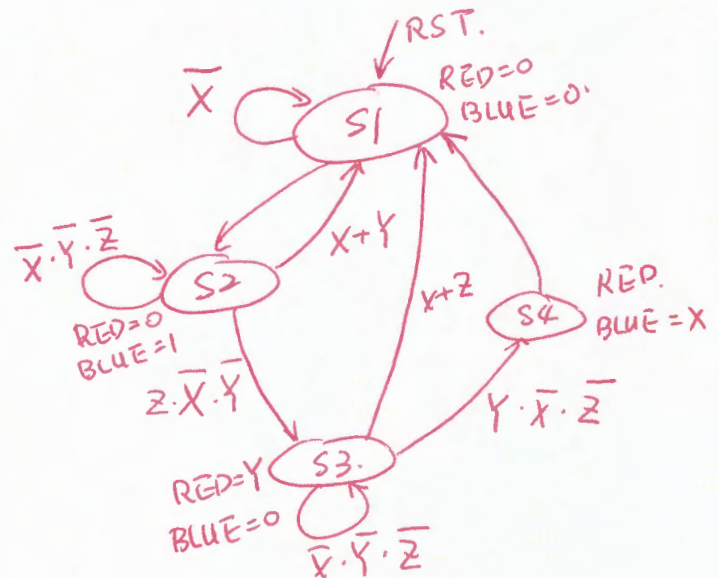 RST.
X̅
S1
RED=0
BLUE=0.
X̅·Y̅·Z̅
S2
X+Y
RED=0
BLUE=1
X+Z
S4
RED.
BLUE=X
Z·X̅·Y̅
Y·X̅·Z̅
S3.
RED=Y
BLUE=0
X̅·Y̅·Z̅